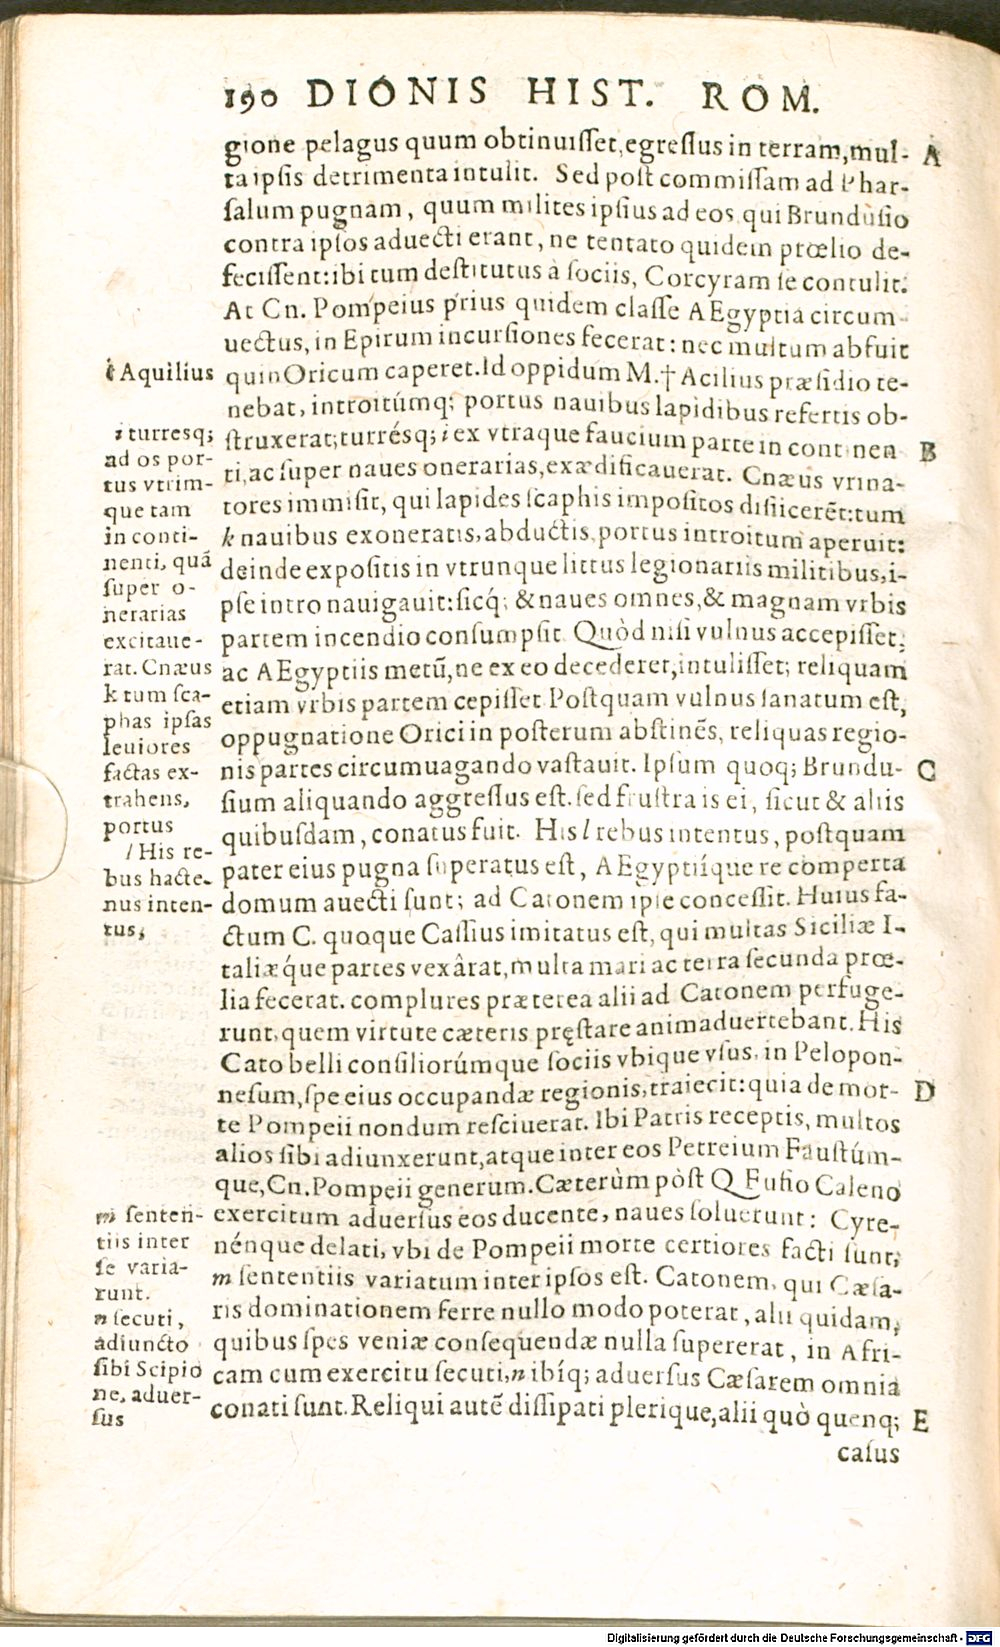 190 DIONIS HIST. ROM.
gione pelagus quum obtinuiſſet, egreſſus in terram, mul- A
ta ipſis detrimenta intulit. Sed poſt commiſſam ad Phar-
ſalum pugnam, quum milites ipſius ad eos qui Brunduſio
contra ipſos aduecti erant, ne tentato quidem prœlio de-
feciſſent: ibi tum deſtitutus à ſociis, Corcyram ſe contulit.
At Cn. Pompeius prius quidem claſſe AEgyptia circum-
uectus, in Epirum incurſiones fecerat: nec multum abfuit
quin Oricum caperet. Id oppidum M. † Acilius præſidio te-
nebat, introitúmq; portus nauibus lapidibus refertis ob-
ſtruxerat; turréſq; i ex vtraque faucium parte in continen B
ti, ac ſuper naues onerarias, exædificauerat. Cnæus vrina-
tores immiſit, qui lapides ſcaphis impoſitos diſiicerẽt: tum
k nauibus exoneratis, abductis, portus introitum aperuit:
deinde expoſitis in vtrunque littus legionariis militibus, i-
pſe intro nauigauit: ſicq́; & naues omnes, & magnam vrbis
partem incendio conſumpſit. Quòd niſi vulnus accepiſſet,
ac AEgyptiis metũ, ne ex eo decederet, intuliſſet; reliquam
etiam vrbis partem cepiſſet. Poſtquam vulnus ſanatum eſt,
oppugnatione Orici in poſterum abſtinẽs, reliquas regio-
nis partes circumuagando vaſtauit. Ipſum quoq; Brundu- C
ſium aliquando aggreſſus eſt. ſed fruſtra is ei, ſicut & aliis
quibuſdam, conatus fuit. His l rebus intentus, poſtquam
pater eius pugna ſuperatus eſt, AEgyptiíque re comperta
domum auecti ſunt; ad Catonem ipſe conceſſit. Huius fa-
ctum C. quoque Caſſius imitatus eſt, qui multas Siciliæ I-
taliæq́ue partes vexârat, multa mari ac terra ſecunda prœ-
lia fecerat. complures præterea alii ad Catonem perfuge-
runt, quem virtute cæteris pręſtare animaduertebant. His
Cato belli conſiliorúmque ſociis vbique vſus, in Pelopon-
neſum, ſpe eius occupandæ regionis, traiecit: quia de mor- D
te Pompeii nondum reſciuerat. Ibi Patris receptis, multos
alios ſibi adiunxerunt, atque inter eos Petreium Fauſtúm-
que, Cn. Pompeii generum. Cæterùm pòſt Q Fuſio Caleno
exercitum aduerſus eos ducente, naues ſoluerunt: Cyre-
nénque delati, vbi de Pompeii morte certiores facti ſunt,
m ſententiis variatum inter ipſos eſt. Catonem, qui Cæſa-
ris dominationem ferre nullo modo poterat, alii quidam,
quibus ſpes veniæ conſequendæ nulla ſupererat, in Afri-
cam cum exercitu ſecuti, n ibíq; aduerſus Cæſarem omnia
conati ſunt. Reliqui autẽ diſſipati plerique, alii quò quenq; E
caſus
† Aquilius
i turresq;
ad os por-
tus vtrim-
que tam
in conti-
nenti, quã
ſuper o-
nerarias
excitaue-
rat. Cnæus
k tum ſca-
phas ipſas
leuiores
factas ex-
trahens,
portus
l His re-
bus hacte-
nus inten-
tus,
m ſenten-
tiis inter
ſe varia-
runt.
n ſecuti,
adiuncto
ſibi Scipio
ne, aduer-
ſus
Digitalisierung gefördert durch die Deutsche Forschungsgemeinschaft - DFG